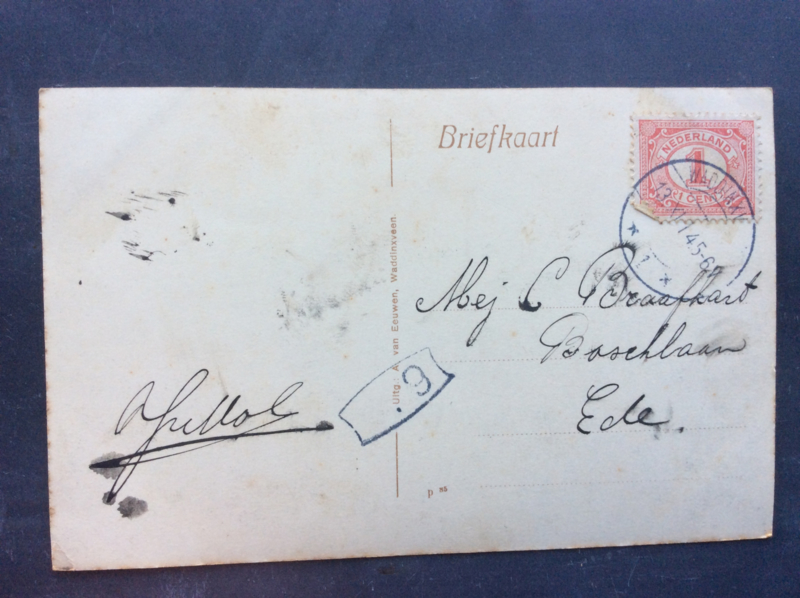 Briefkaart
NEDERLAND
1
1 CENT
* 1 *
Uitg.: A. van Eeuwen, Waddinxveen.
Mej C Braafkart
Boschlaan
Ede.
6.
P 98